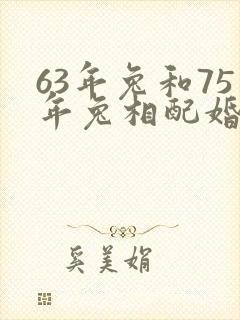 63年兔和75
年兔相配婚
奚美娟